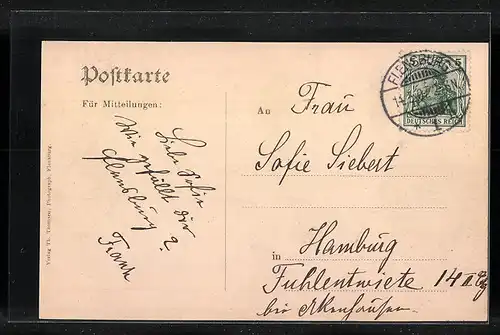 Postkarte
Für Mitteilungen:
Liebe Sofie
Wie gefällt dir
Flensburg?
Frank
An Frau
Sofie Siebert
Hamburg
in Fuhlentwiete 14 II. Etg
bei
FLENSBURG
14.
5
DEUTSCHES REICH
Verlag Th. Thomsen, Photograph, Flensburg.